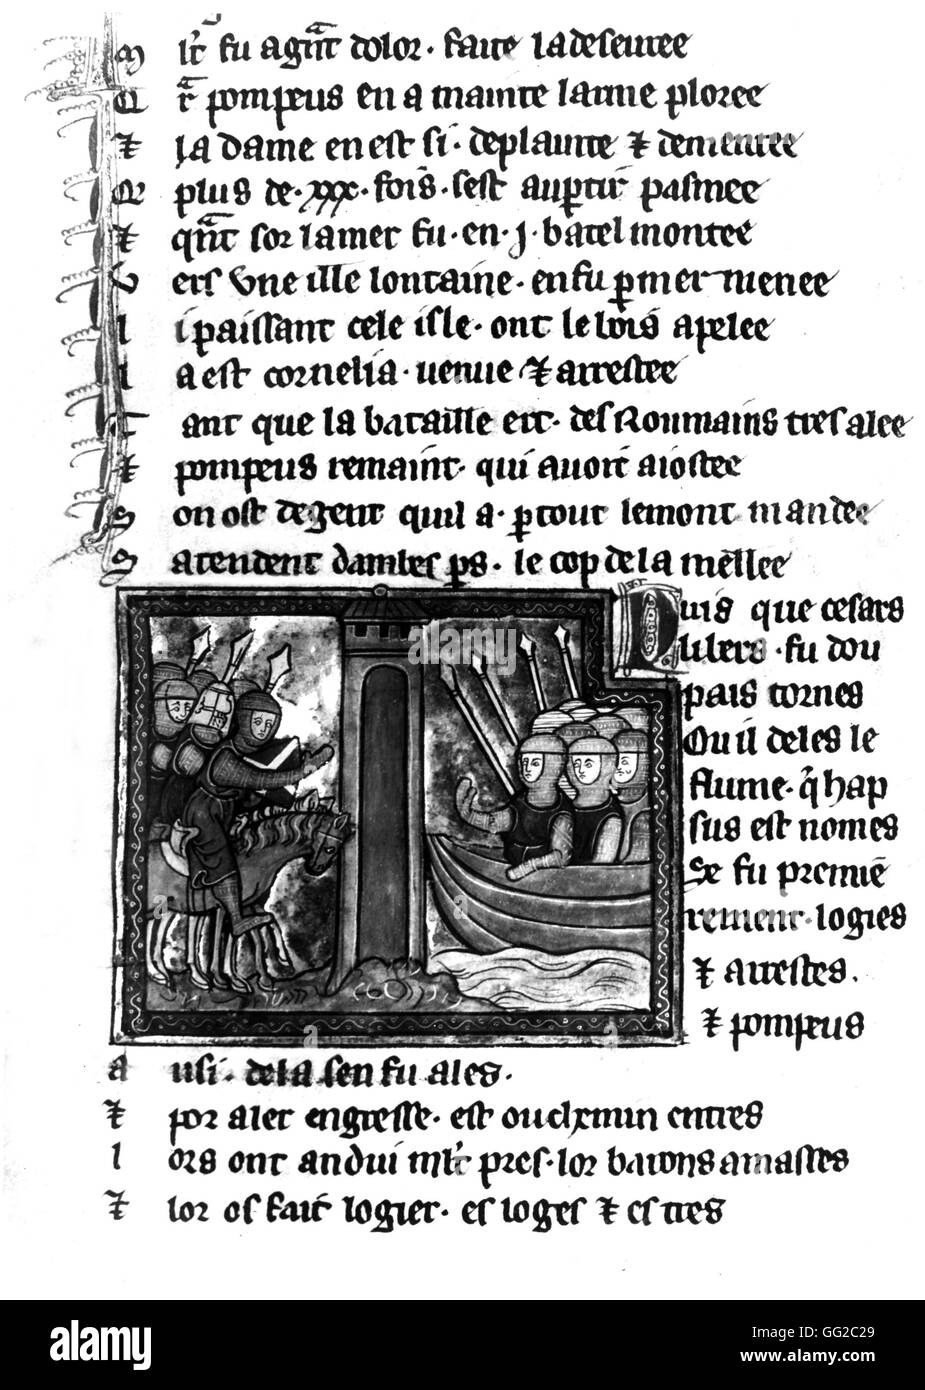 M lt' fu agñt dolor · faite la deseuree
Et pompeus en a mainte larme ploree
⁊ la dame en est si · deplainte ⁊ dementee
Q plus de · xxx · fois · sest au ptir pasmee
⁊ qñt sor la mer fu · en · j · batel montee
V ers vne ille lontaine · en fu p mer menee
l i paissant cele isle · ont lelbis apelee
l a est cornelia · venue ⁊ arrestee
T ant que la bataille ert · des Roumains tresalee
⁊ pompeus remaint · qui auoit aiostee
S on ost de gent quil a · p tout le mont mandee
S atendent dambes ps · le cop de la mellee
Puis que cesars
li bers · fu dou
pais tornes
Ou il deles le
flume · q̃ hap
sus est nomes
Se fu premie
rement · logies
⁊ arrestes ·
⁊ pompeus
a usi · de la sen fu ales ·
⁊ por aler engresse · est ou chemin entres
l ors ont andui mlt' pres · lor barons amasses
⁊ lor os fait logier · es loges ⁊ es tres
alamy
Image ID: GG2C29
www.alamy.com